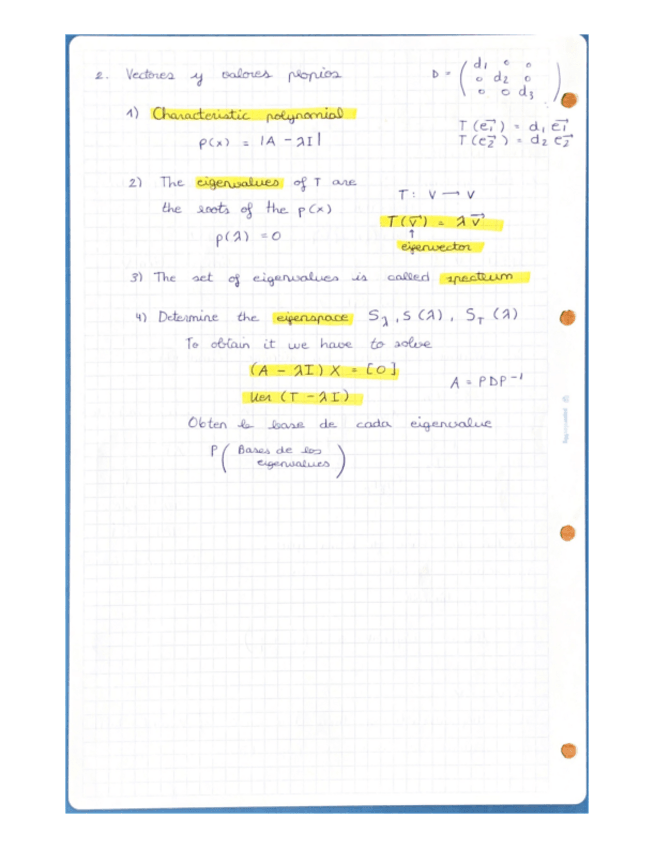 2. Vectores y valores propios
D = ( d1 0 0
0 d2 0
0 0 d3 )
1) Characteristic polynomial
p(x) = |A - λI|
T(e1→) = d1 e1→
T(e2→) = d2 e2→
2) The eigenvalues of T are
the roots of the p(x)
p(λ) = 0
T: V → V
T(v→) = λ v→
↑
eigenvector
3) The set of eigenvalues is called spectrum
4) Determine the eigenspace Sλ, S(λ), ST(λ)
To obtain it we have to solve
(A - λI) X = [0]
Ker (T - λI)
A = PDP⁻¹
Obten la base de cada eigenvalue
P ( Bases de los
eigenvalues )